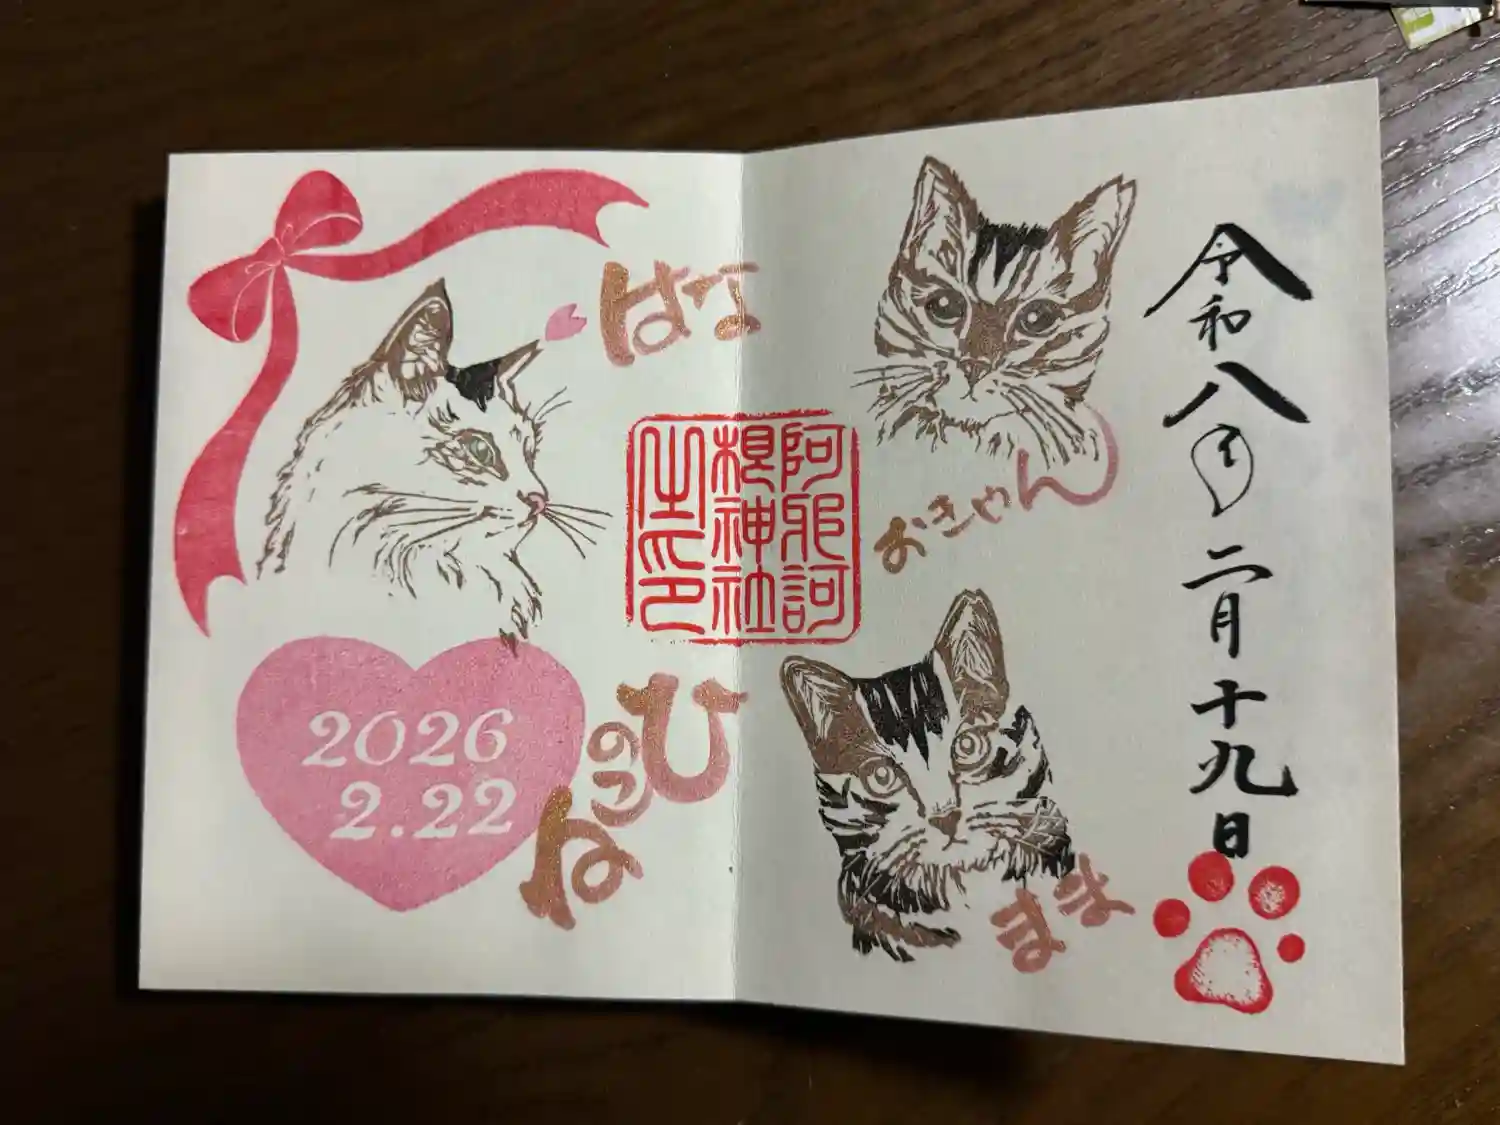 はな
おきゃん
ほま
阿邪訶
根神社
之印
2026
2.22
ねこのひ
令和八年二月十九日